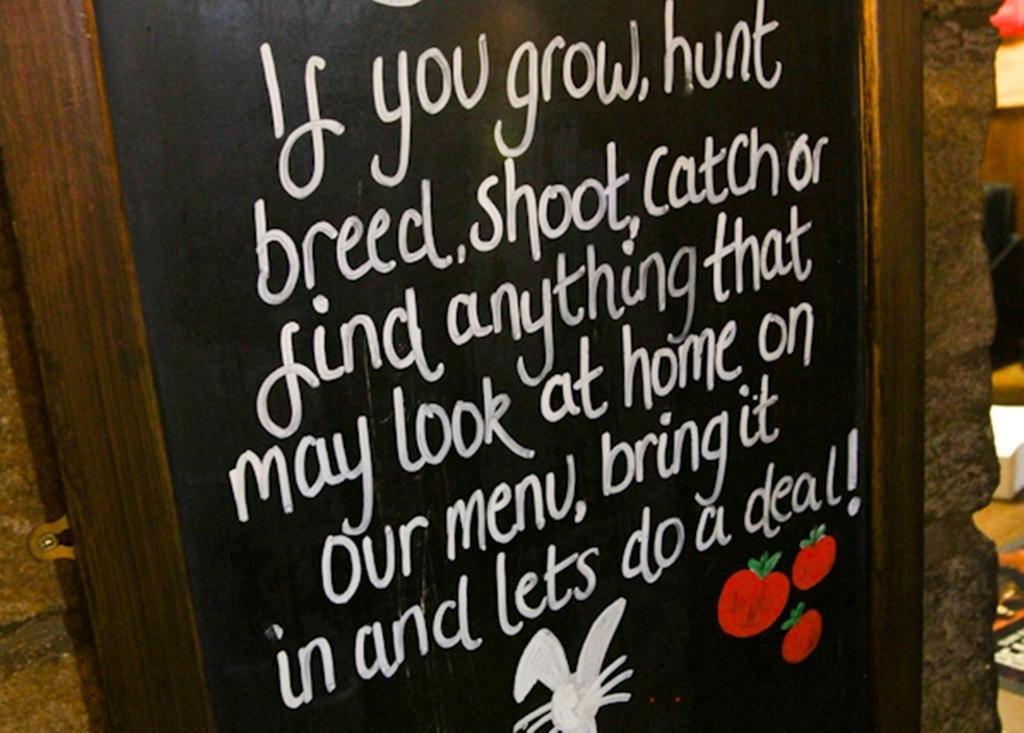 If you grow, hunt
breed, shoot, catch or
find anything that
may look at home on
our menu, bring it
in and lets do a deal!